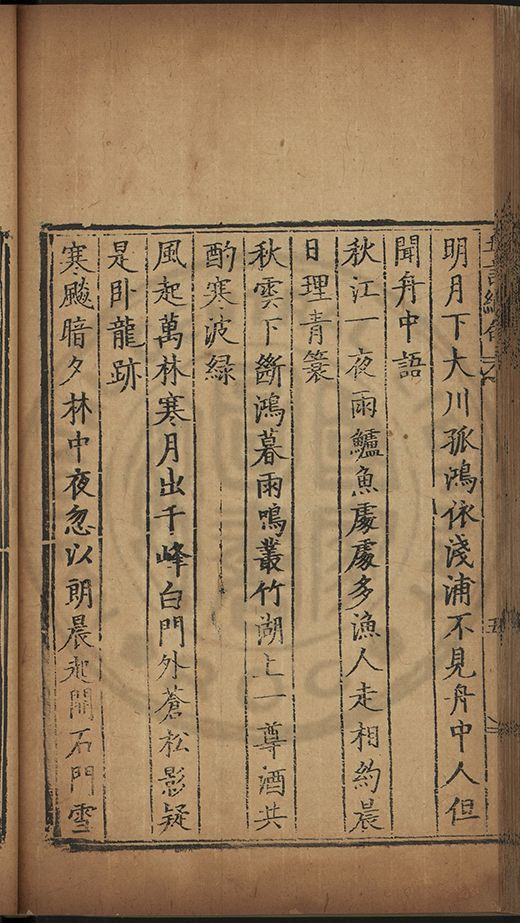 明月下大川孤鴻依淺浦不見舟中人但
聞舟中語
秋江一夜雨鱸魚處處多漁人走相約晨
日理青簑
秋雲下斷鴻暮雨鳴叢竹湖上一尊酒共
酌寒波緑
風起萬林寒月出千峰白門外蒼松影疑
是卧龍跡
寒飈暗夕林中夜忽以朗晨起開石門雪
五